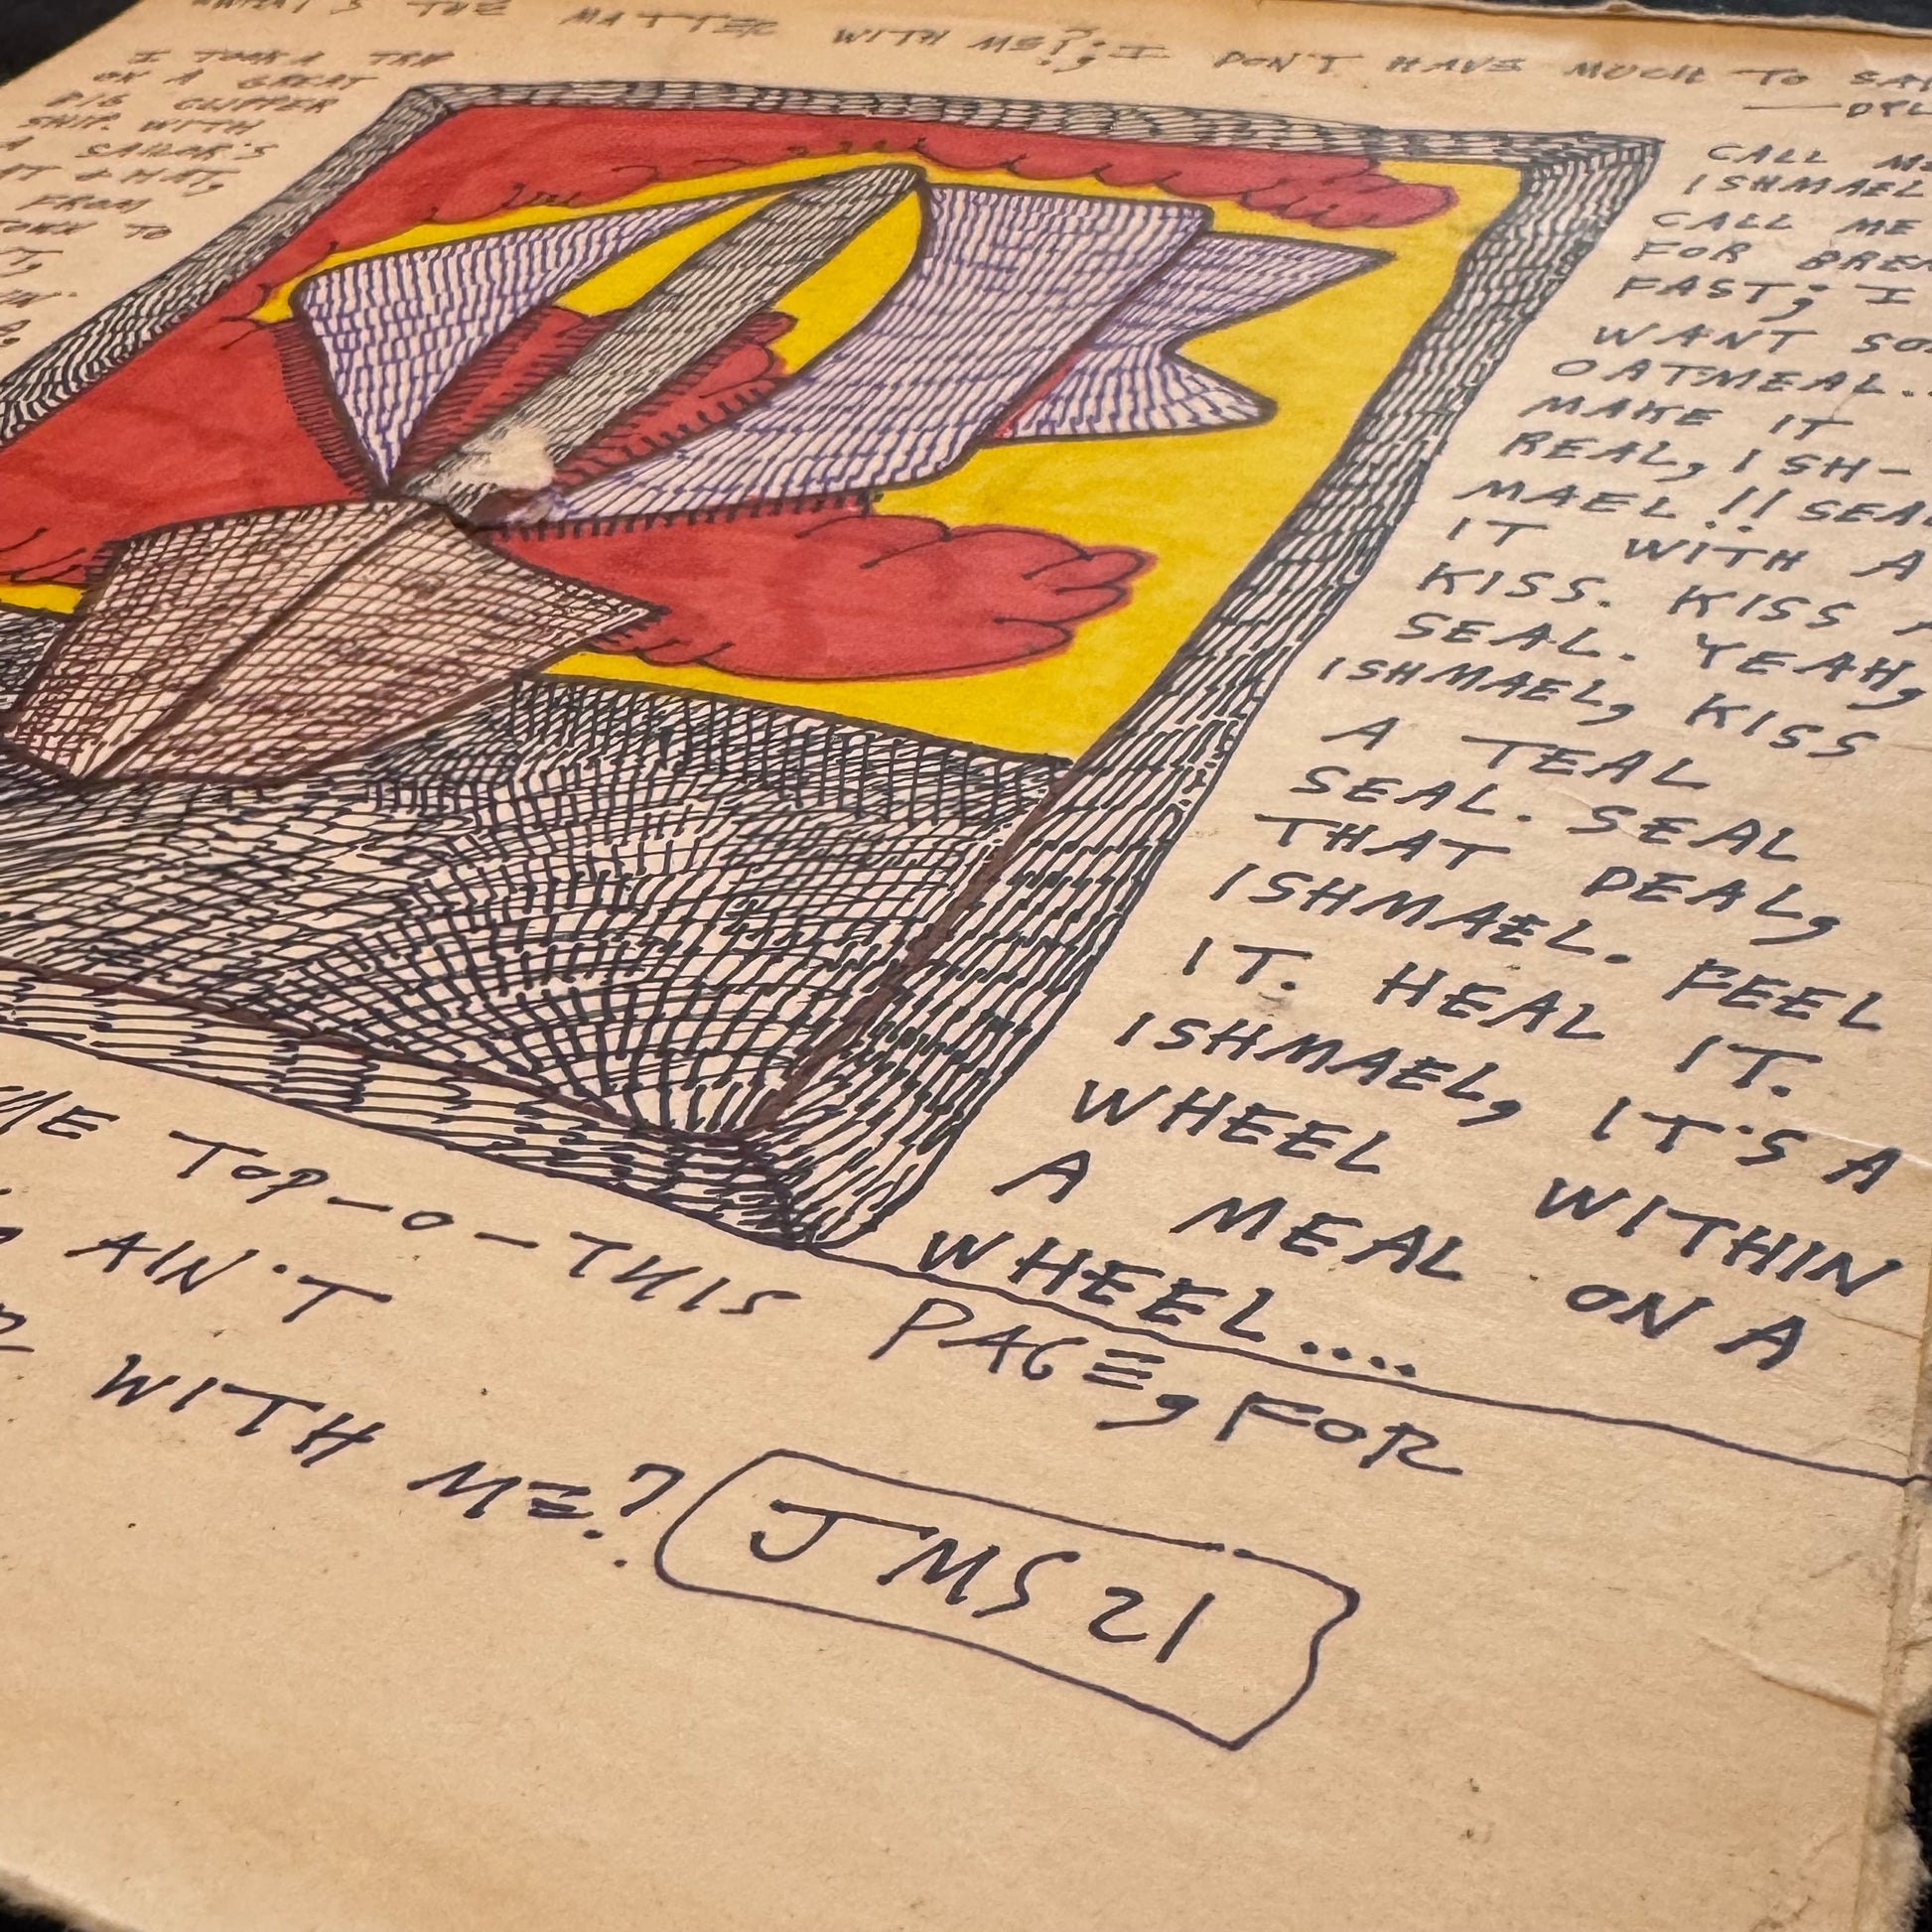 WHAT'S THE MATTER WITH ME?; I DON'T HAVE MUCH TO SAY
I TOOK A TRIP
ON A GREAT
BIG CLIPPER
SHIP. WITH
A SAILOR'S
FROM
TO
CALL ME
ISHMAEL
CALL ME
FOR BREA
FAST; I
WANT SO
OATMEAL.
MAKE IT
REAL, ISH-
MAEL!! SEAL
IT WITH A
KISS. KISS A
SEAL. YEAH,
ISHMAEL, KISS
A TEAL
SEAL. SEAL
THAT DEAL,
ISHMAEL. FEEL
IT. HEAL IT.
ISHMAEL, IT'S A
WHEEL WITHIN
A MEAL ON A
WHEEL....
TOP-O-THIS PAGE, FOR
AIN'T
WITH ME?
JMS 21